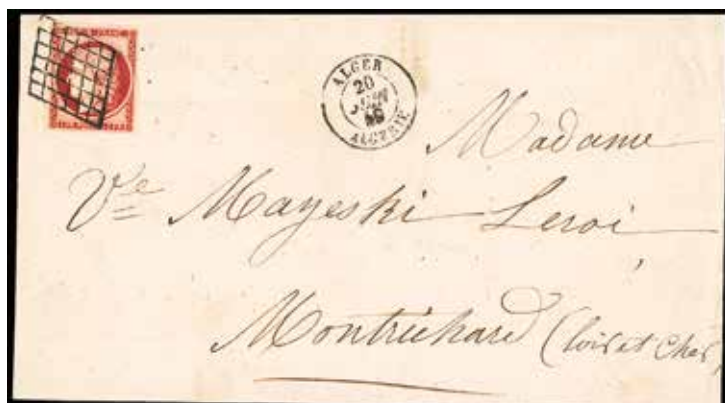 ALGER
20
JUIN
ALGERIE
Madame
Vve Mayeski Leroi
Montrichard (Loir et Cher)